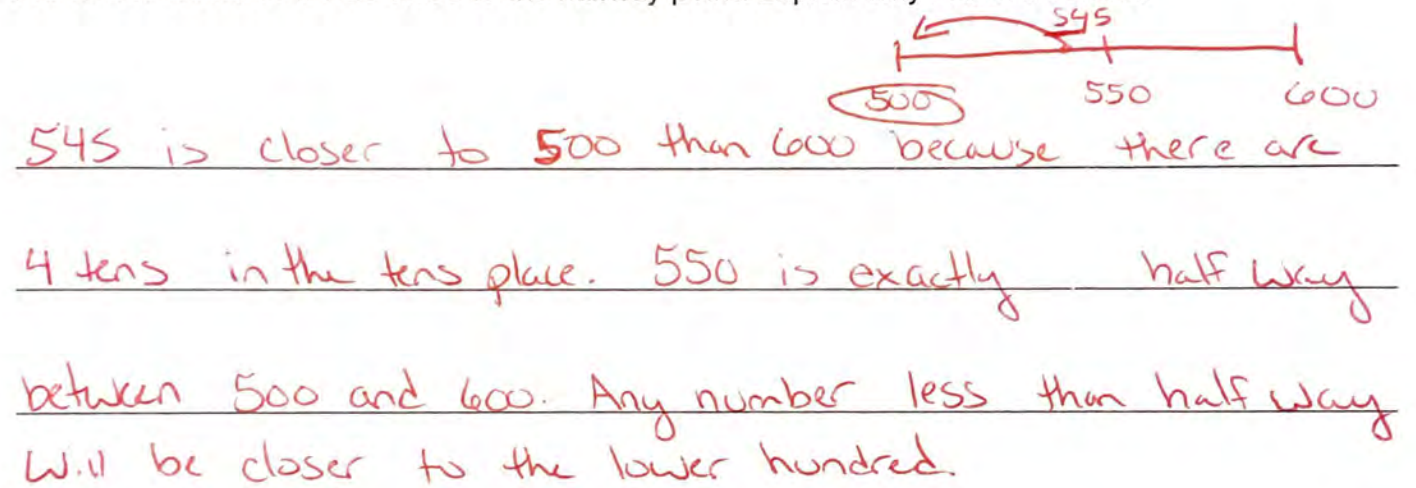 545
500 550 600
545 is closer to 500 than 600 because there are
4 tens in the tens place. 550 is exactly half way
between 500 and 600. Any number less than half way
will be closer to the lower hundred.